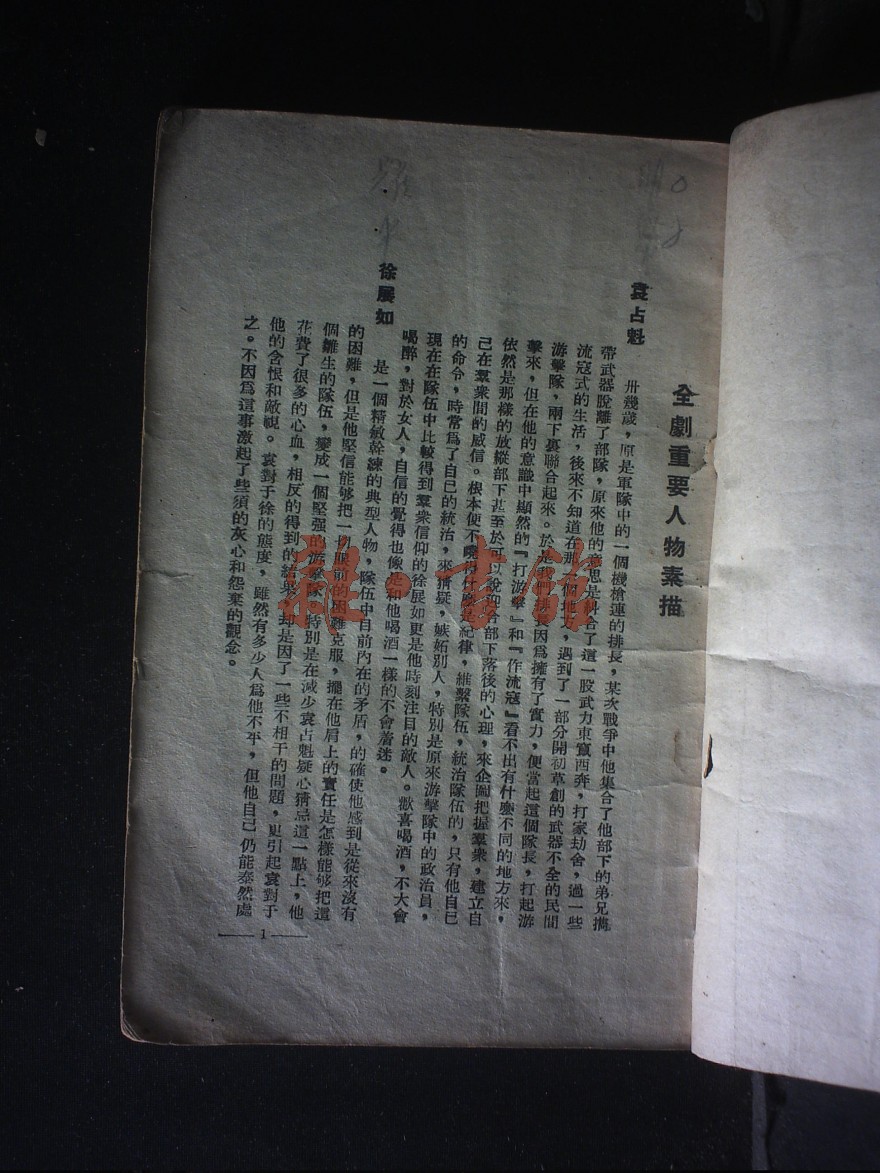 全劇重要人物素描
袁占魁
卅幾歲，原是軍隊中的一個機槍連的排長，某次戰爭中他集合了他部下的弟兄携
帶武器脫離了部隊，原來他的意思是糾合了這一股武力東竄西奔，打家劫舍，過一些
流寇式的生活，後來不知道在那一個地方，遇到了一部分開初草創的武器不全的民間
游擊隊，兩下裏聯合起來。於是我們排長因爲擁有了實力，便當起這個隊長，打起游
擊來，但在他的意識中顯然的『打游擊』和『作流寇』看不出有什麼不同的地方來，
依然是那樣的放縱部下甚至於可以說迎合部下落後的心理，來企圖把握羣衆，建立自
己在羣衆間的威信。根本便不曉得什麼是紀律，維繫隊伍，統治隊伍的，只有他自己
的命令，時常爲了自己的統治，來猜疑，嫉妬別人，特別是原來游擊隊中的政治員，
現在在隊伍中比較得到羣衆信仰的徐展如更是他時刻注目的敵人。歡喜喝酒，不大會
喝醉，對於女人，自信的覺得也像是和他喝酒一樣的不會着迷。
徐展如
是一個精敏幹練的典型人物，隊伍中目前內在的矛盾，的確使他感到是從來沒有
的困難，但是他堅信能够把一切眼前的困難克服，擺在他肩上的責任是怎樣能够把這
個雛生的隊伍，變成一個堅强的游擊隊，特別是在减少袁占魁疑心猜忌這一點上，他
花費了很多的心血，相反的得到的結果，却是因了一些不相干的問題，更引起袁對于
他的含恨和敵視。袁對于徐的態度，雖然有多少人爲他不平，但他自己仍能泰然處
之。不因爲這事激起了些須的灰心和怨棄的觀念。
— 1 —
雜·書館